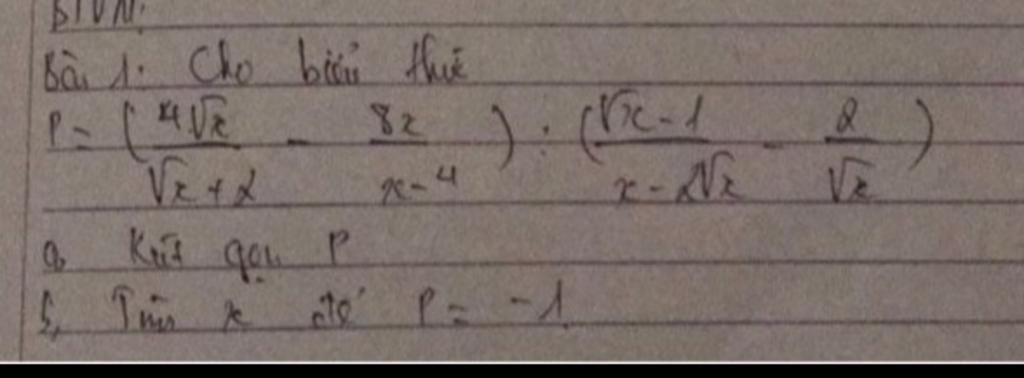 BTVN:
Bài 1: Cho biểu thức
P = ( 4√x / √x + 2 - 8x / x - 4 ) : ( √x - 1 / x - 2√x - 2 / √x )
a, Rút gọn P
b, Tìm x để P = -1